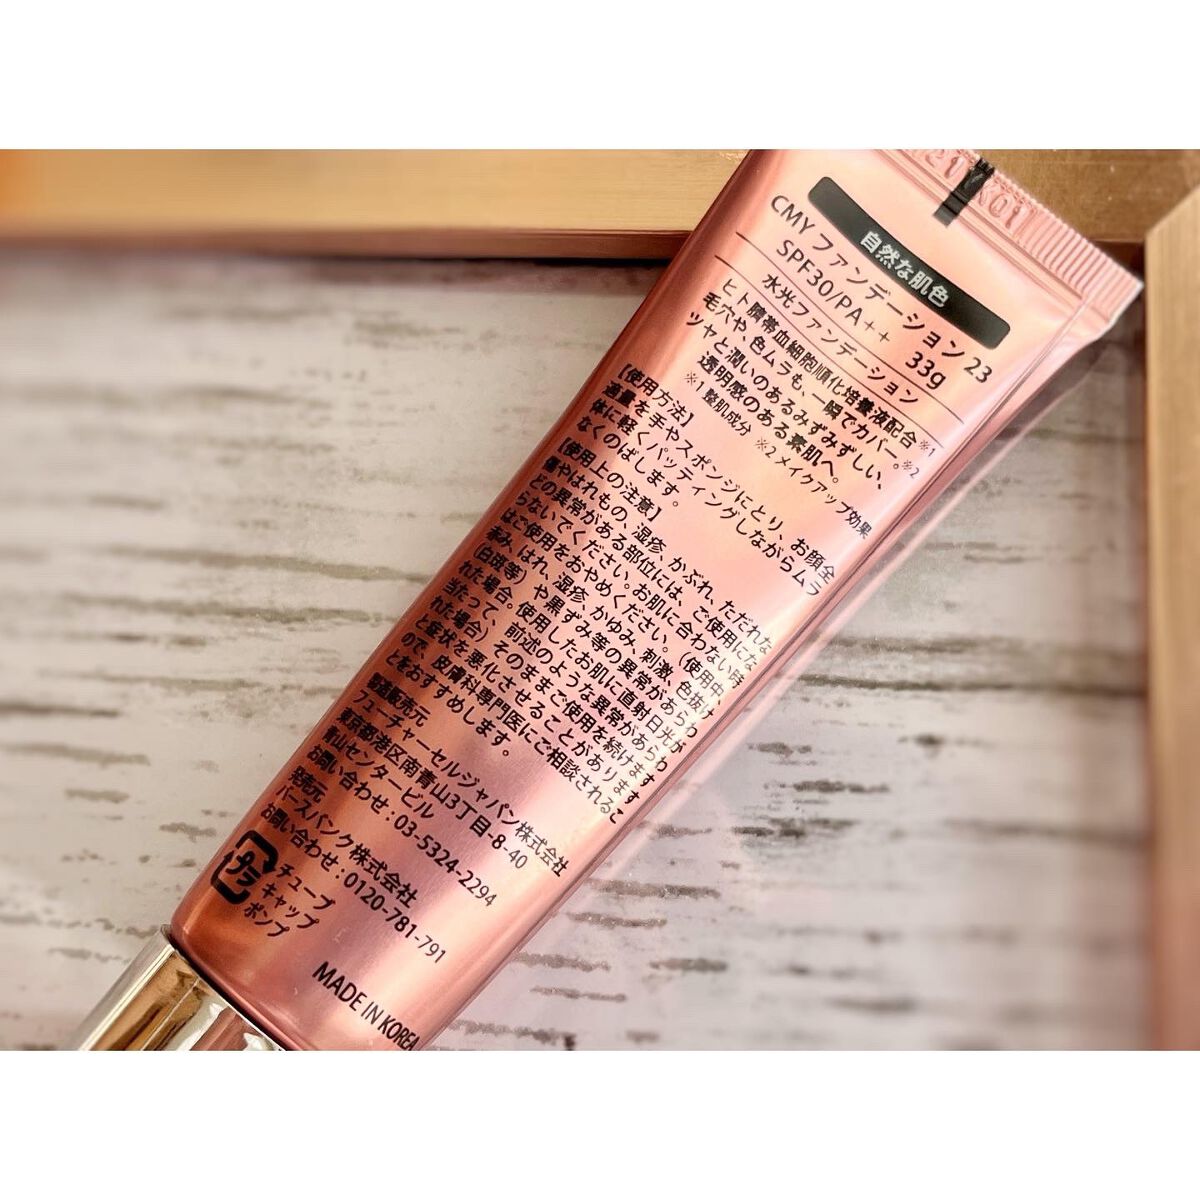 自然な肌色
CMY ファンデーション 23
SPF30/PA++ 33g
水光ファンデーション
ヒト臍帯血細胞順化培養液配合※1
毛穴や、色ムラも、一瞬でカバー。※2
ツヤと潤いのあるみずみずしい、
透明感のある素肌へ。
※1 整肌成分 ※2 メイクアップ効果
【使用方法】
適量を手やスポンジにとり、お顔全
体に軽くパッティングしながらムラ
なくのばします。
【使用上の注意】
傷やはれもの、湿疹、かぶれ、ただれな
どの異常がある部位には、ご使用にな
らないでください。お肌に合わない時
はご使用をおやめください。(使用中、
赤み、はれ、湿疹、かゆみ、刺激、色抜け
(白斑等)や黒ずみ等の異常があらわ
れた場合。使用したお肌に直射日光が
当たって、前述のような異常があらわ
れた場合)そのままご使用を続けます
と症状を悪化させることがあります
ので、皮膚科専門医にご相談されるこ
とをおすすめします。
製造販売元
フューチャーセルジャパン株式会社
東京都港区南青山3丁目-8.40
青山センタービル
お問い合わせ:03-5324-2294
発売元
バースバンク株式会社
お問い合わせ:0120-781-791
プラ
チューブ
キャップ
ポンプ
MADE IN KOREA